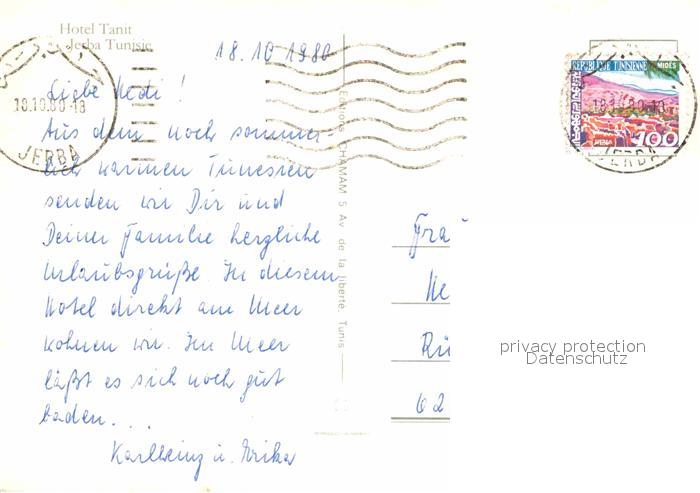 Hotel Tanit
Jerba Tunisie
18.10 1980
Liebe Hedi!
Aus dem noch sommer-
lich warmen Tunesien
senden wir Dir und
Deiner Familie herzliche
Urlaubsgrüße. In diesem
Hotel direkt am Meer
wohnen wir. Im Meer
läßt es sich noch gut
baden...
Karlheinz u. Erika
18.10.80-18
JERBA
Editions CHAMAM 5 Av de la liberté Tunis
REPUBLIQUE TUNISIENNE
MIDES
100
18.10.80-18
JERBA
Frau
He
Rü
62
privacy protection
Datenschutz